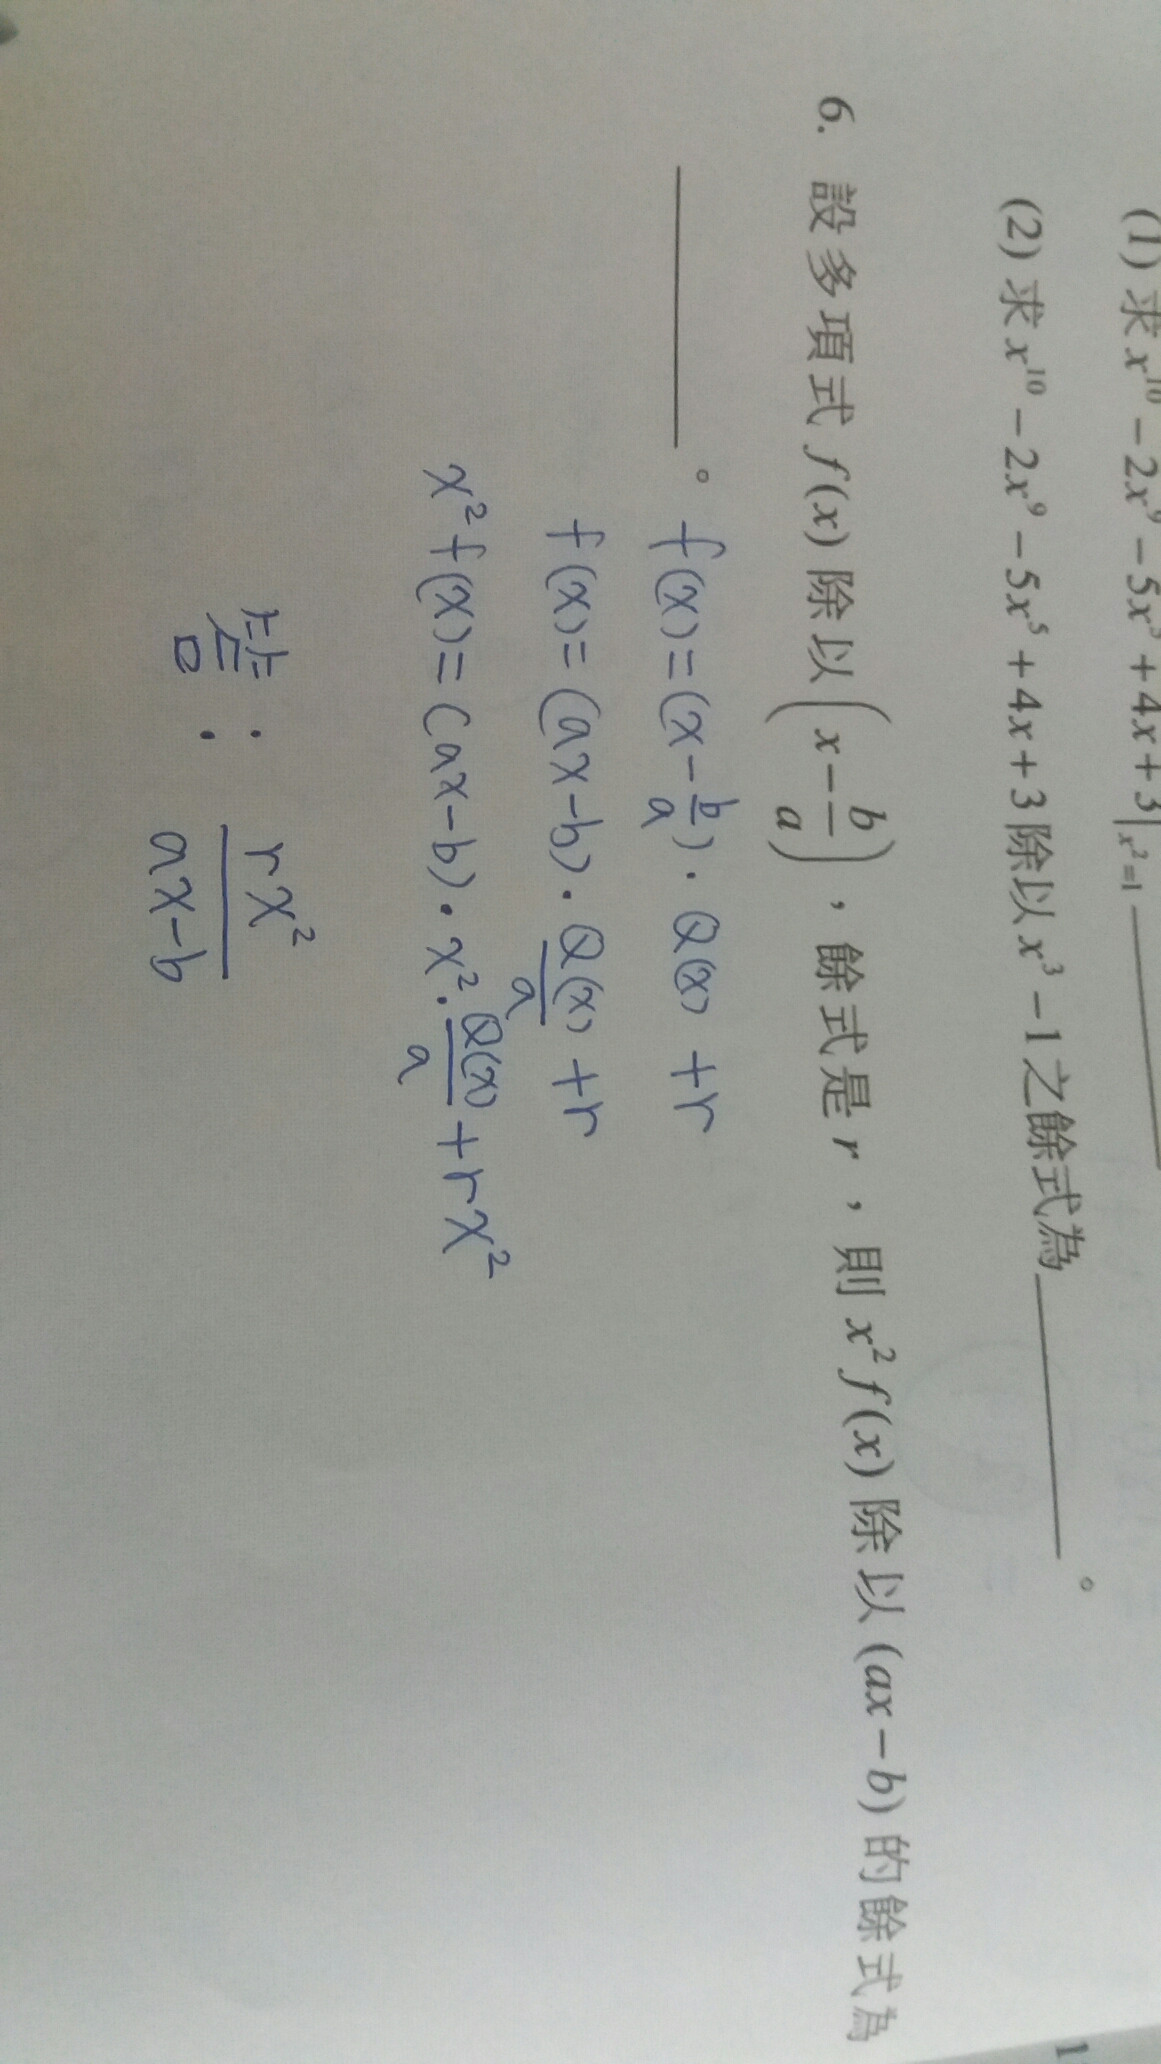 (1) 求 x¹⁰ − 2x⁹ − 5x⁵ + 4x + 3|ₓ²₌₁ ______
(2) 求 x¹⁰ − 2x⁹ − 5x⁵ + 4x + 3 除以 x³ − 1 之餘式為______。
6. 設多項式 f(x) 除以 (x − b/a)，餘式是 r，則 x² f(x) 除以 (ax − b) 的餘式為
______。
f(x) = (x − b/a) · Q(x) + r
f(x) = (ax − b) · Q(x)/a + r
x² f(x) = (ax − b) · x² · Q(x)/a + rx²
답 : rx²/(ax − b)
1